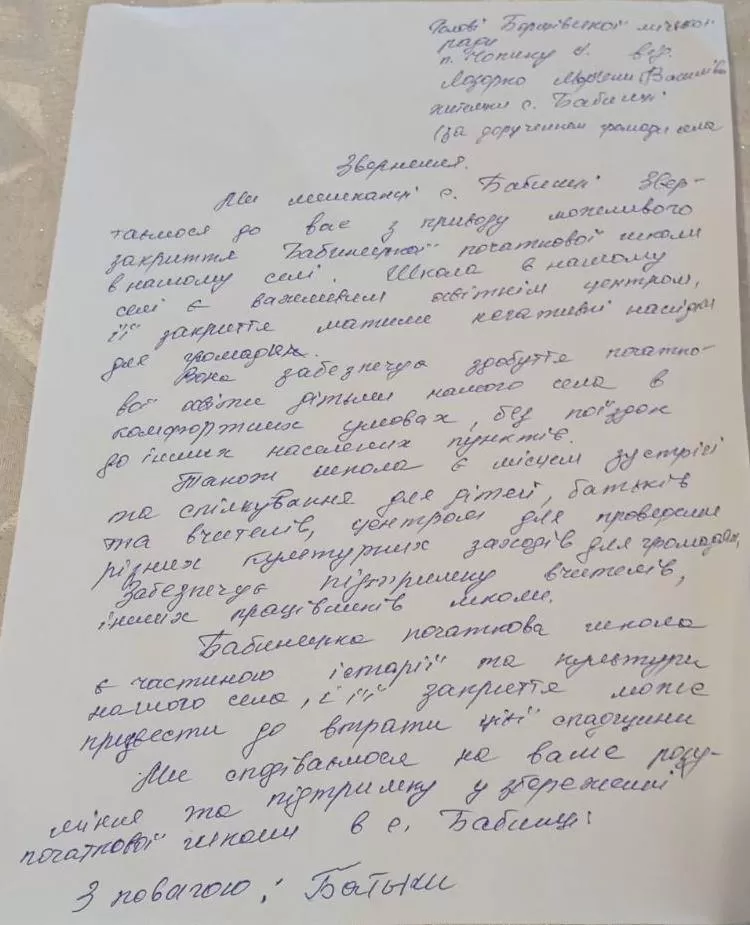 Голові Борщівської міської
ради
п. Чопику І. від
Лазорко Василівни
жительки с. Бабинці
(за дорученням громади села
Звернення.
Ми мешканці с. Бабинці звер-
таємося до вас з приводу можливого
закриття Бабинецької початкової школи
в нашому селі. Школа в нашому
селі є важливим освітнім центром,
її закриття матиме негативні наслідки
для громади.
Вона забезпечує здобуття початко-
вої освіти дітьми нашого села в
комфортних умовах, без поїздок
до інших населених пунктів.
Також школа є місцем зустрічі
та спілкування для дітей, батьків
та вчителів, центром для проведення
різних культурних заходів для громади,
Забезпечує підтримку вчителів,
інших працівників школи.
Бабинецька початкова школа
є частиною історії та культури
нашого села, і її закриття може
призвести до втрати цієї спадщини
Ми сподіваємося на ваше розу-
міння та підтримку у збереженні
початкової школи в с. Бабинці.
З повагою: Батьки